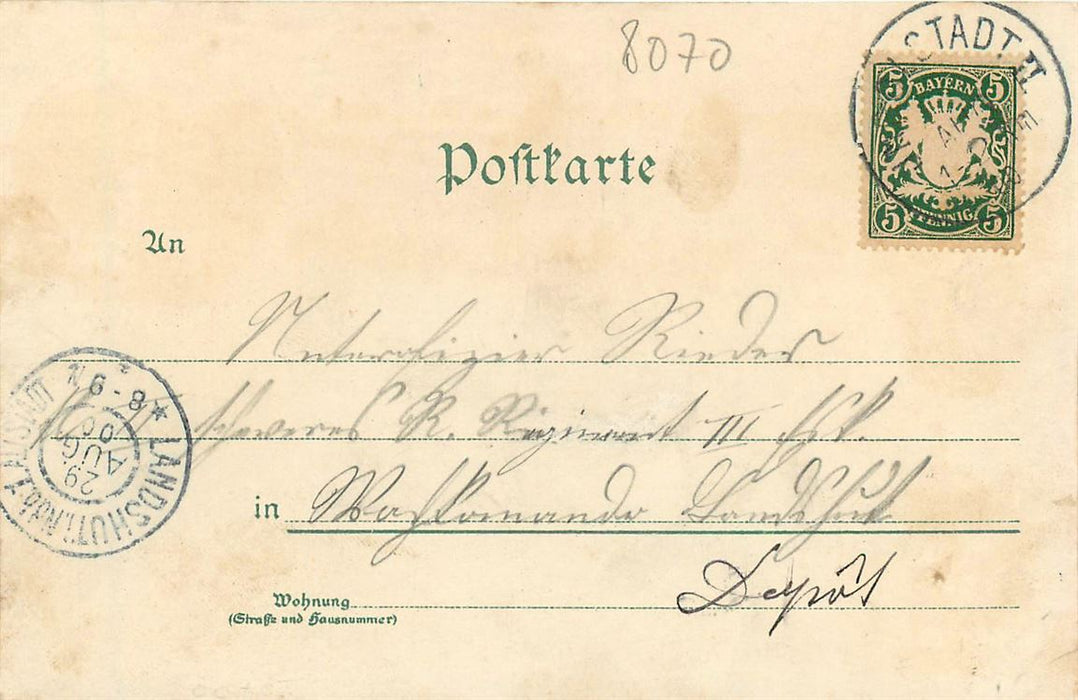 8070
STADT. II
5 BAYERN 5
5 PFENNIG 5
Postkarte
An
Unteroffizier Rieder
schweres R. Regiment III Esk.
in Wachkomando Landshut
Depôt
Wohnung
(Straße und Hausnummer)
LANDSHUT
29. AUG 00
8-9 N.